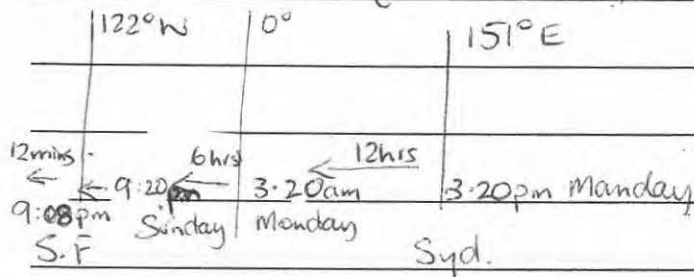 122°W 0° 151°E
12mins 6hrs 12hrs
9:20pm 3.20am 3.20pm Manday
9:08pm Sunday Monday
S.F Syd.